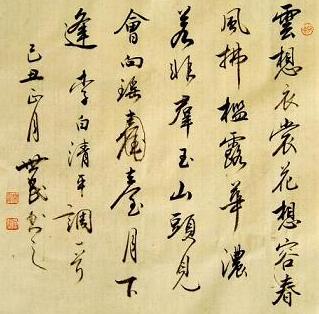 雲想衣裳花想容春
風拂檻露華濃
若非羣玉山頭見
會向瑤臺月下
逢 李白清平調一首
己丑正月 世民書之